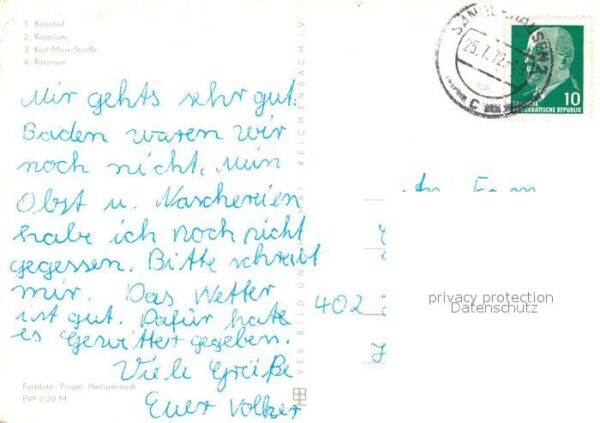 1. Bahnhof
2. Rosarium
3. Karl-Marx-Straße
4. Rosarium
Mir gehts sehr gut.
Baden waren wir
noch nicht. Mein
Obst u. Naschereien
habe ich noch nicht
gegessen. Bitte schreibt
mir. Das Wetter
ist gut. Dafür hate
es Gewitter gegeben.
Viele Grüße
Euer Volker
Farbfoto: Pingel, Heiligenstadt
EVP 0,20 M
VEB BILD UND HEIMAT REICHENBACH i. V.
SANGERHAUSEN 2
25.7.72
c
10
DEUTSCHE
DEMOKRATISCHE REPUBLIK
An Fam
402
privacy protection
Datenschutz